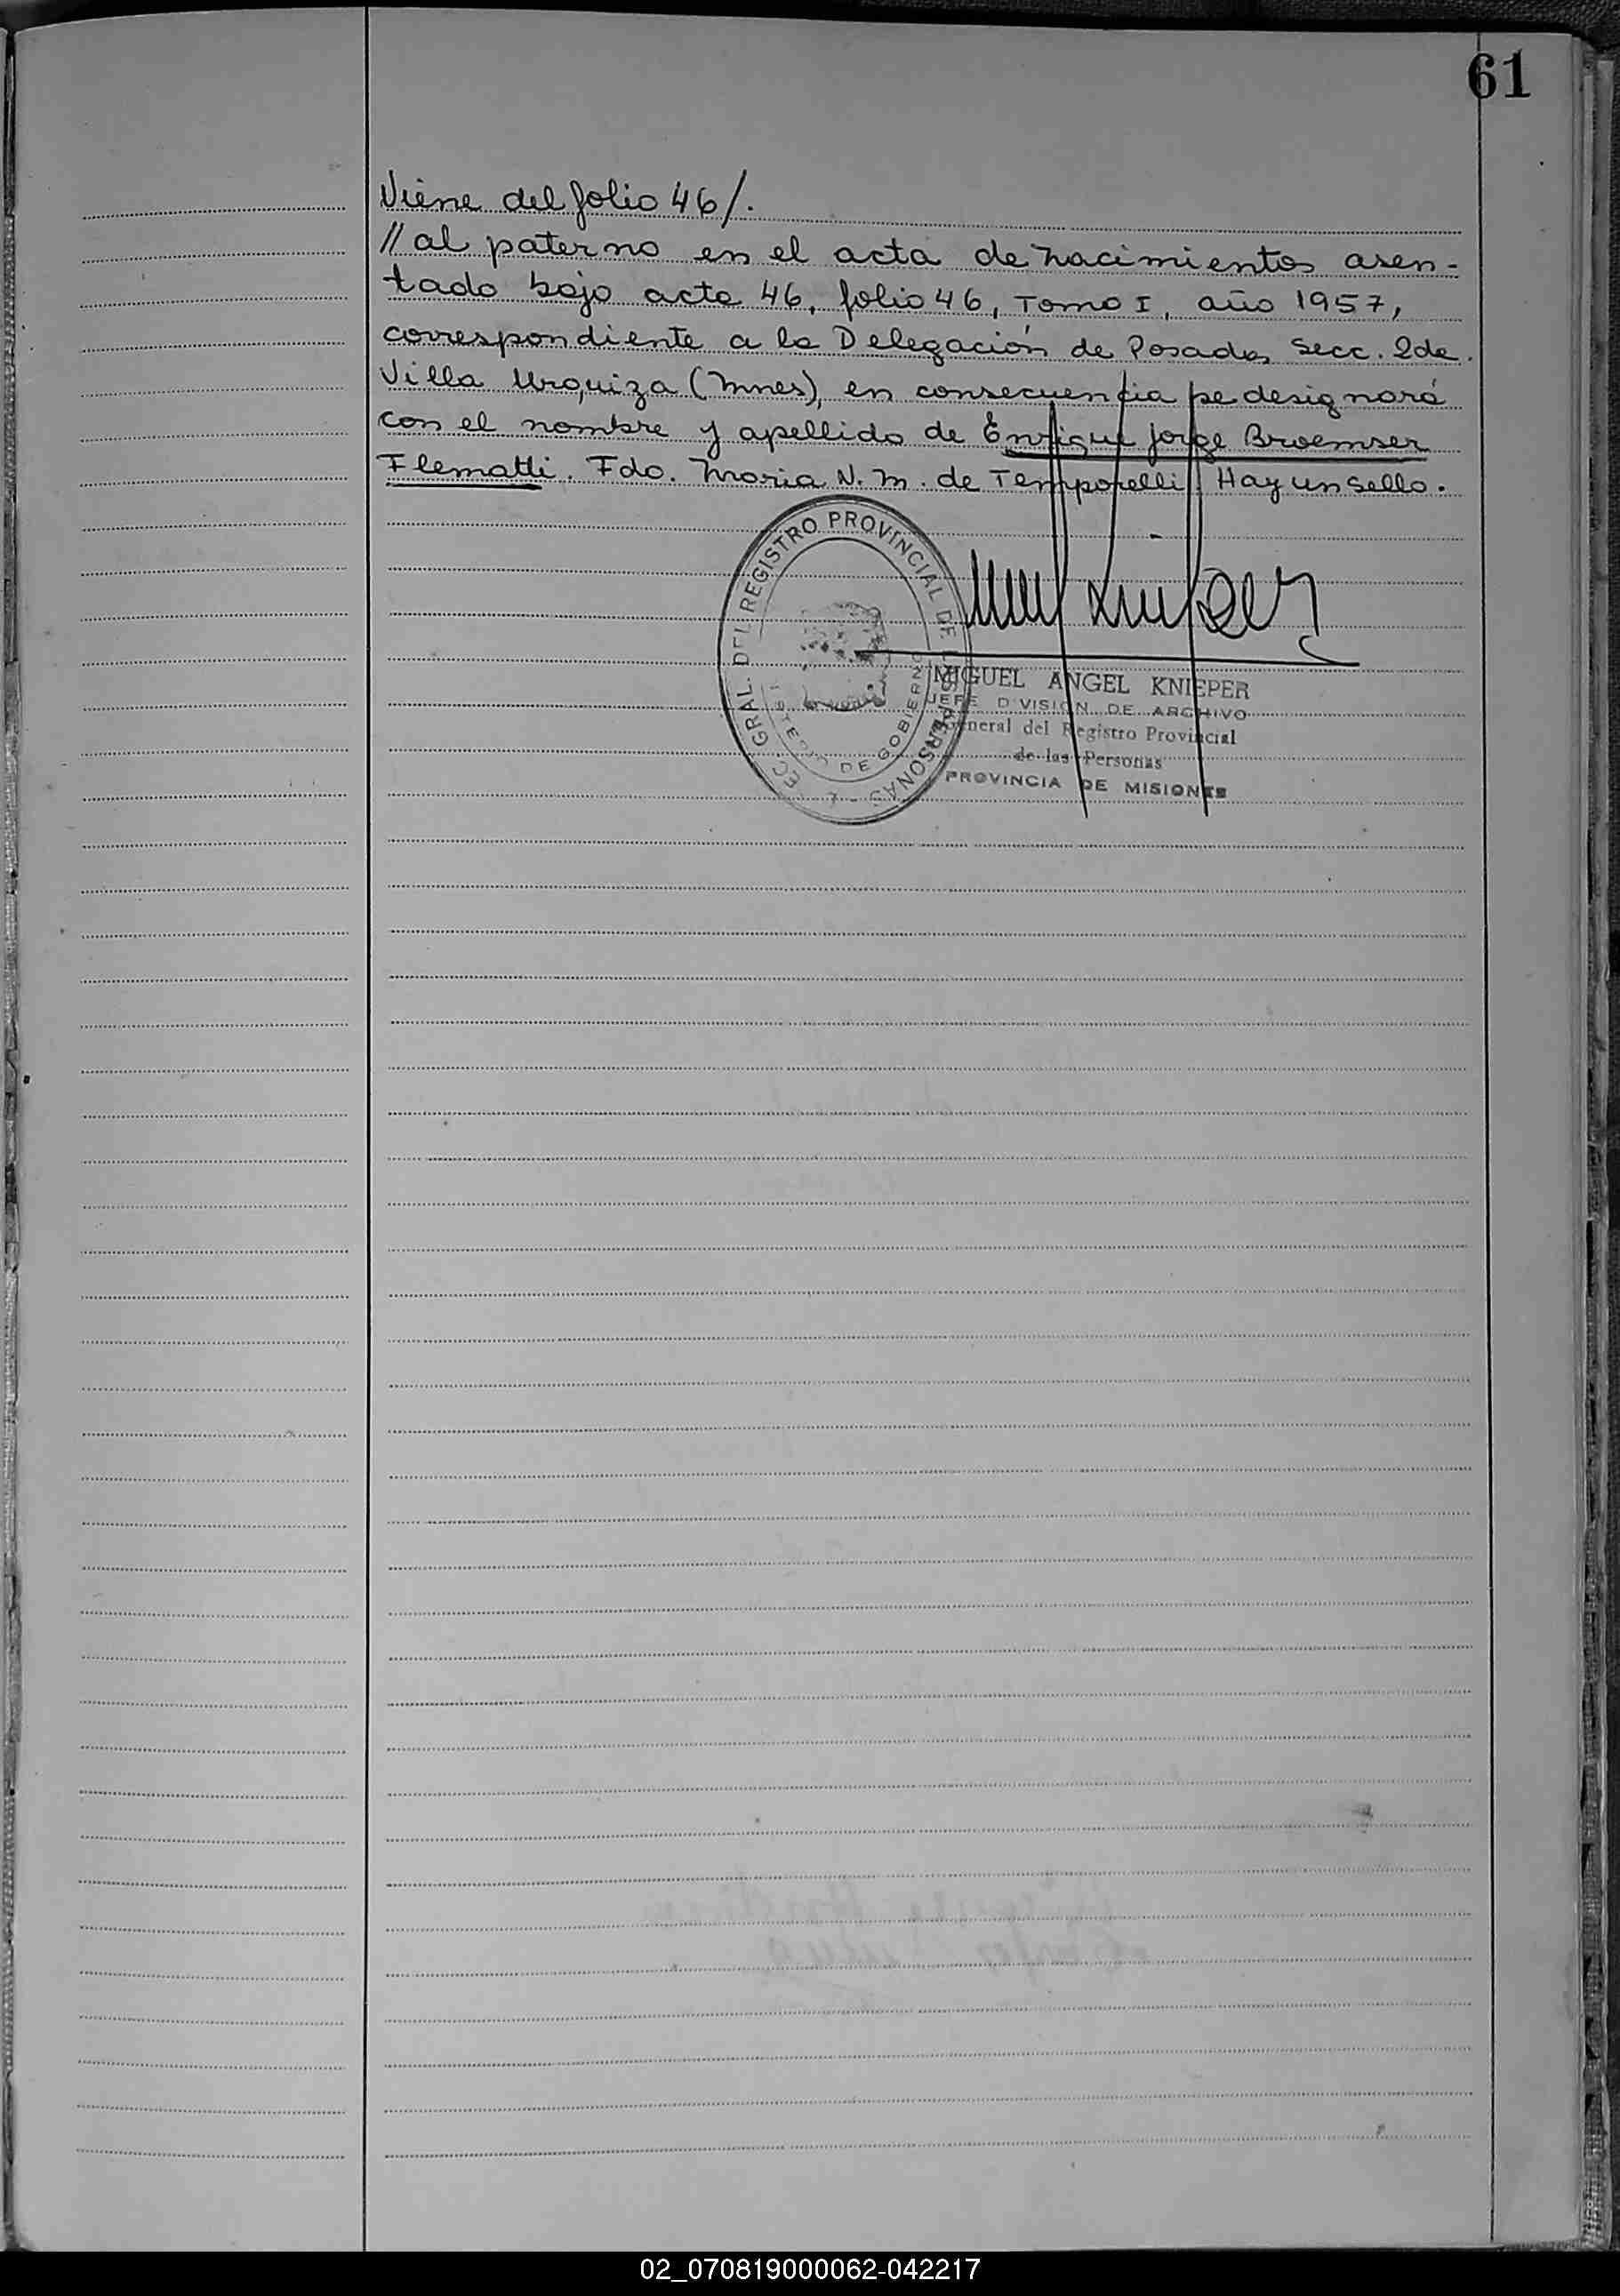 61
Viene del folio 46/.
// al paterno en el acta de nacimientos asen-
tado bajo acta 46, folio 46, Tomo I, año 1957,
correspondiente a la Delegación de Posadas Secc. 2da.
Villa Urquiza (Mnes), en consecuencia se designará
con el nombre y apellido de Enrique Jorge Broemser
Flematti. Fdo. Maria N. M. de Temporelli. Hay un sello.
GRAL. DEL REGISTRO PROVINCIAL DE
PERSONAS
DE GOBIERNO
MIGUEL ANGEL KNIEPER
JEFE D VISION DE ARCHIVO
General del Registro Provincial
de las Personas
PROVINCIA DE MISIONES
02_070819000062-042217